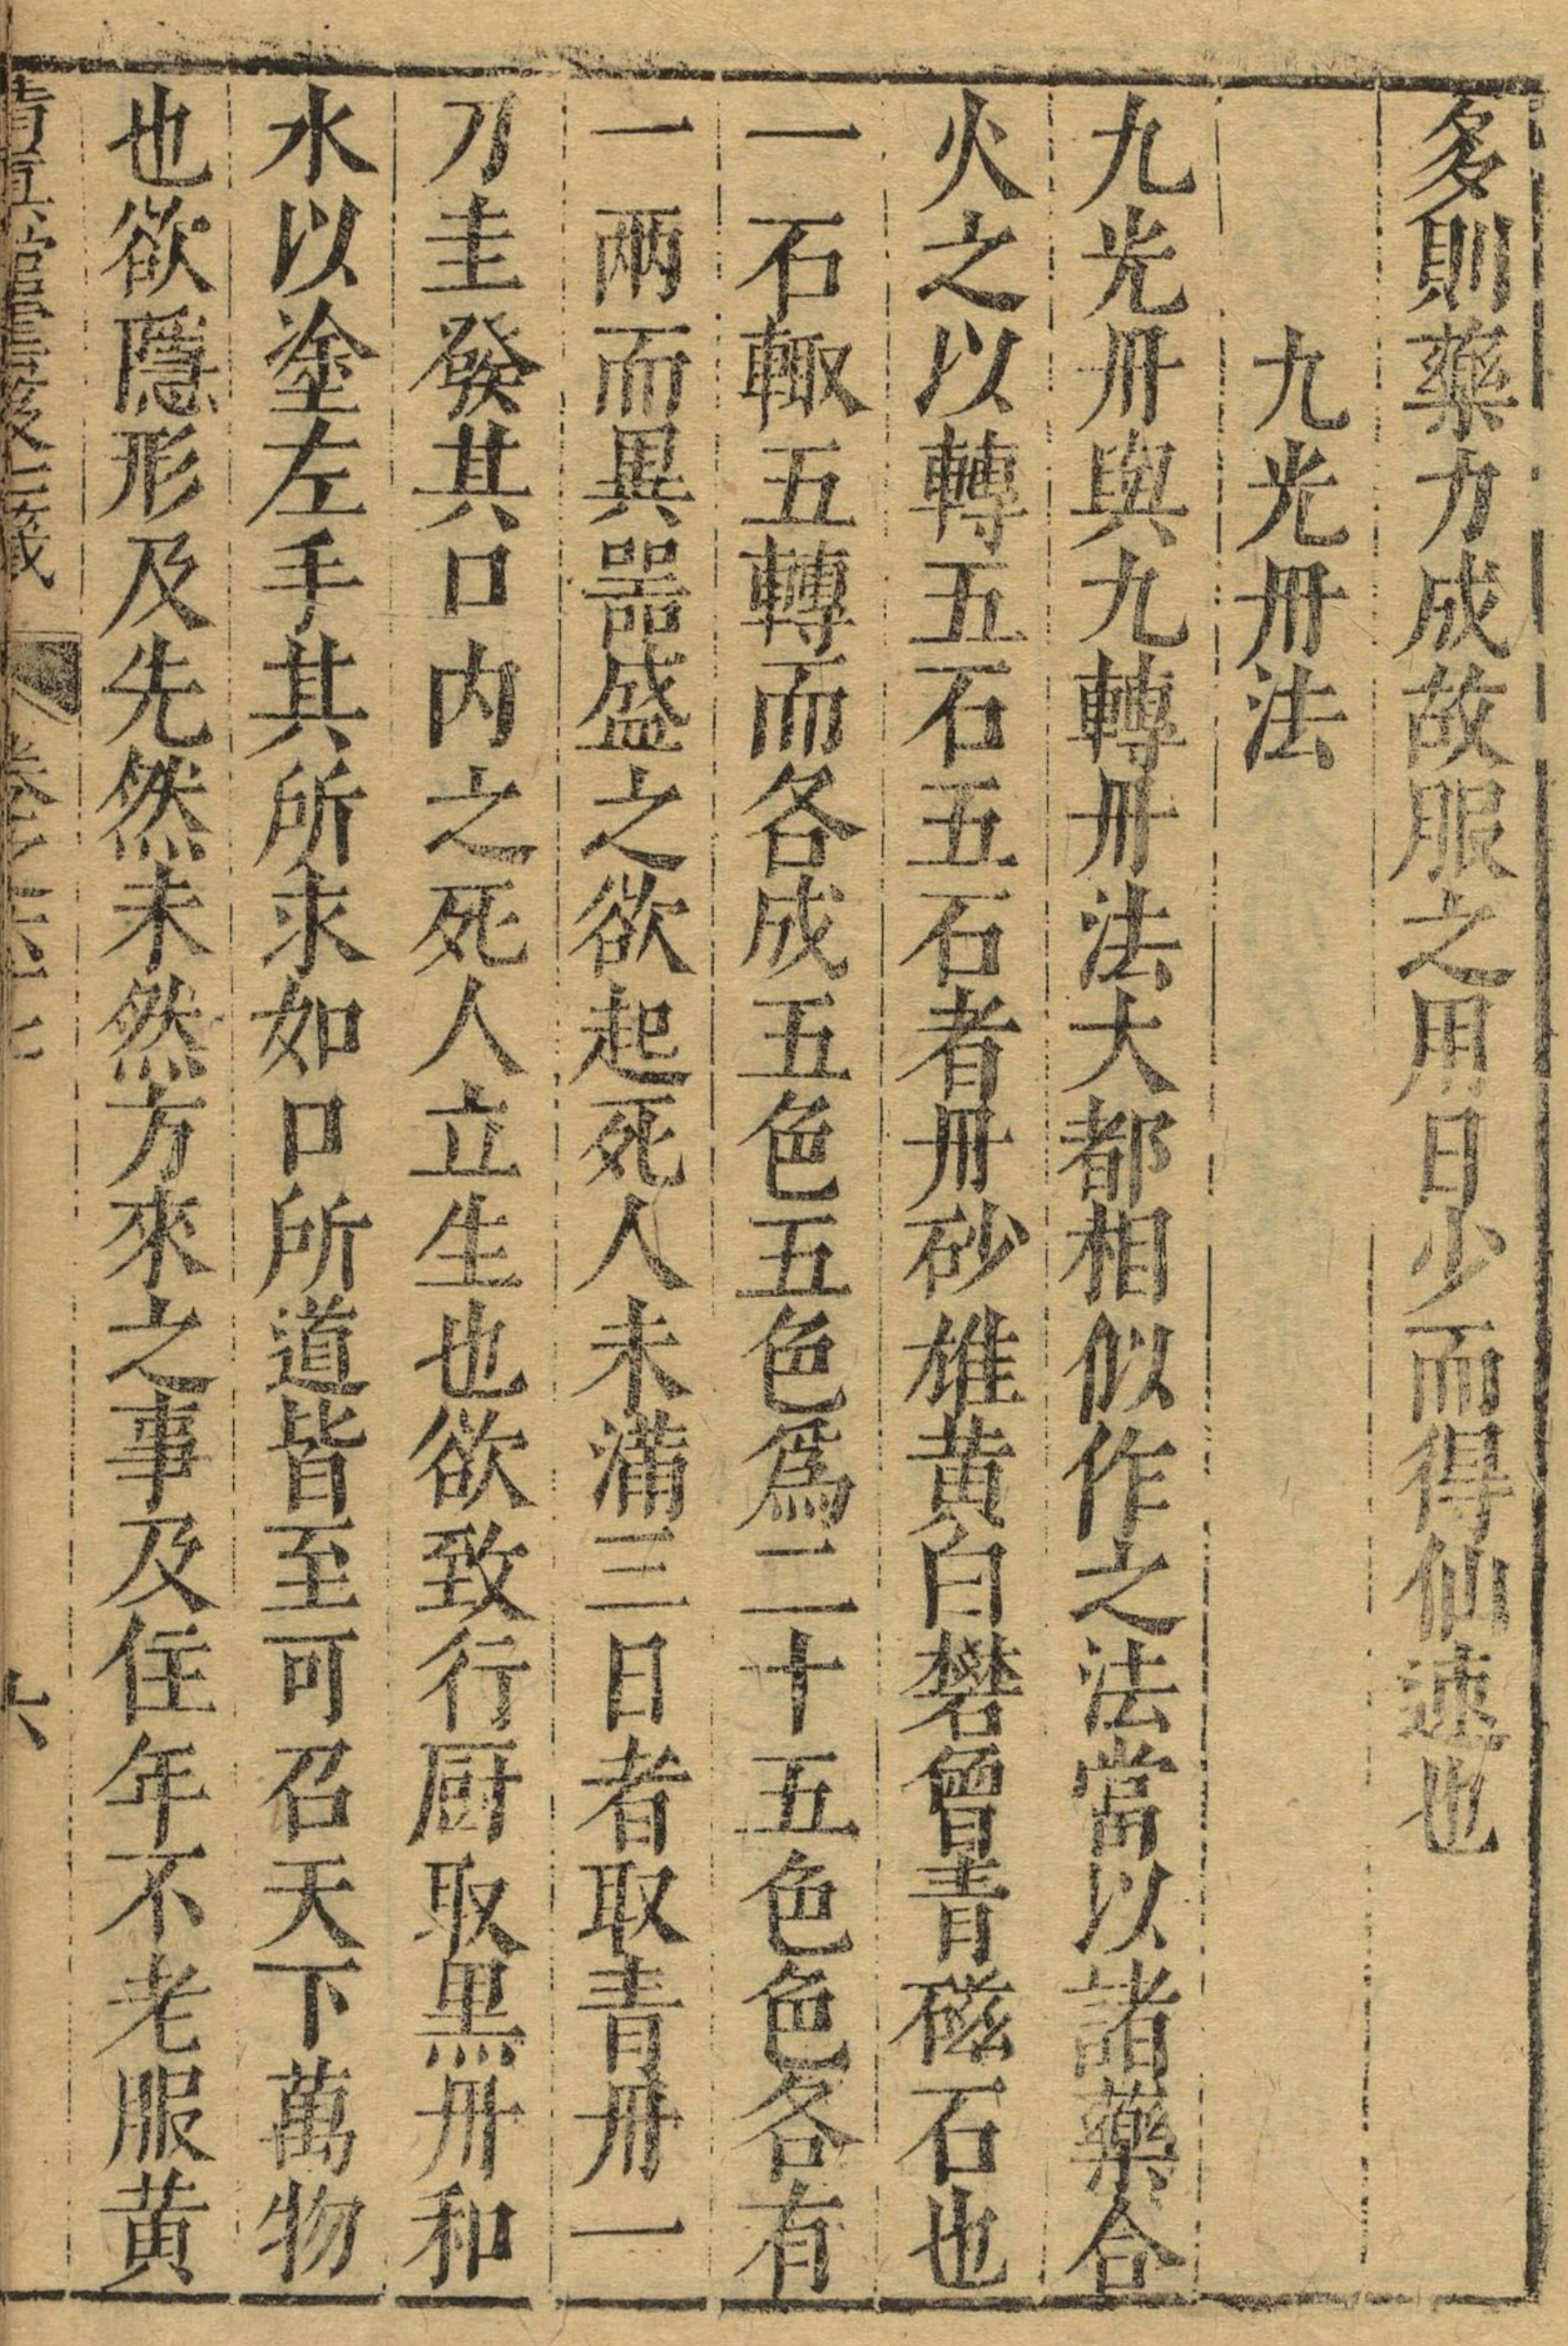 多則藥力成故服之用日少而得仙速也
九光丹法
九光丹與九轉丹法大都相似作之法當以諸藥合
火之以轉五石五石者丹砂雄黃白礬曾青磁石也
一石輙五轉而各成五色五色爲二十五色色各有
一兩而異噐盛之欲起死人未滿三日者取青丹一
刀圭發其口内之死人立生也欲致行厨取黑丹和
水以塗左手其所求如口所道皆至可召天下萬物
也欲隱形及先然未然方來之事及住年不老服黃
六